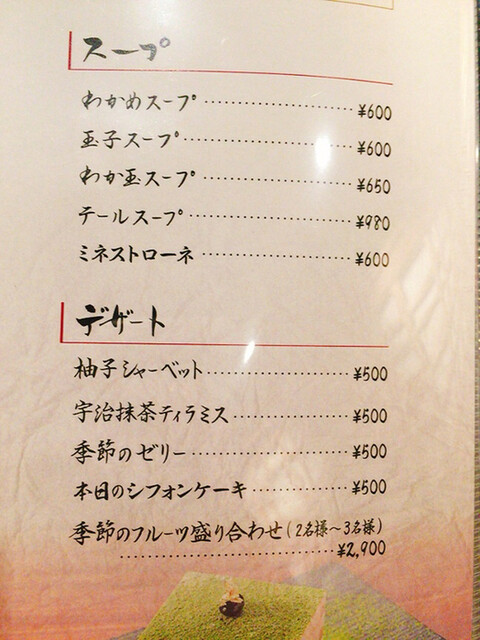 スープ
わかめスープ ¥600
玉子スープ ¥600
わか玉スープ ¥650
テールスープ ¥980
ミネストローネ ¥600
デザート
柚子シャーベット ¥500
宇治抹茶ティラミス ¥500
季節のゼリー ¥500
本日のシフォンケーキ ¥500
季節のフルーツ盛り合わせ(2名様～3名様)
¥2,900